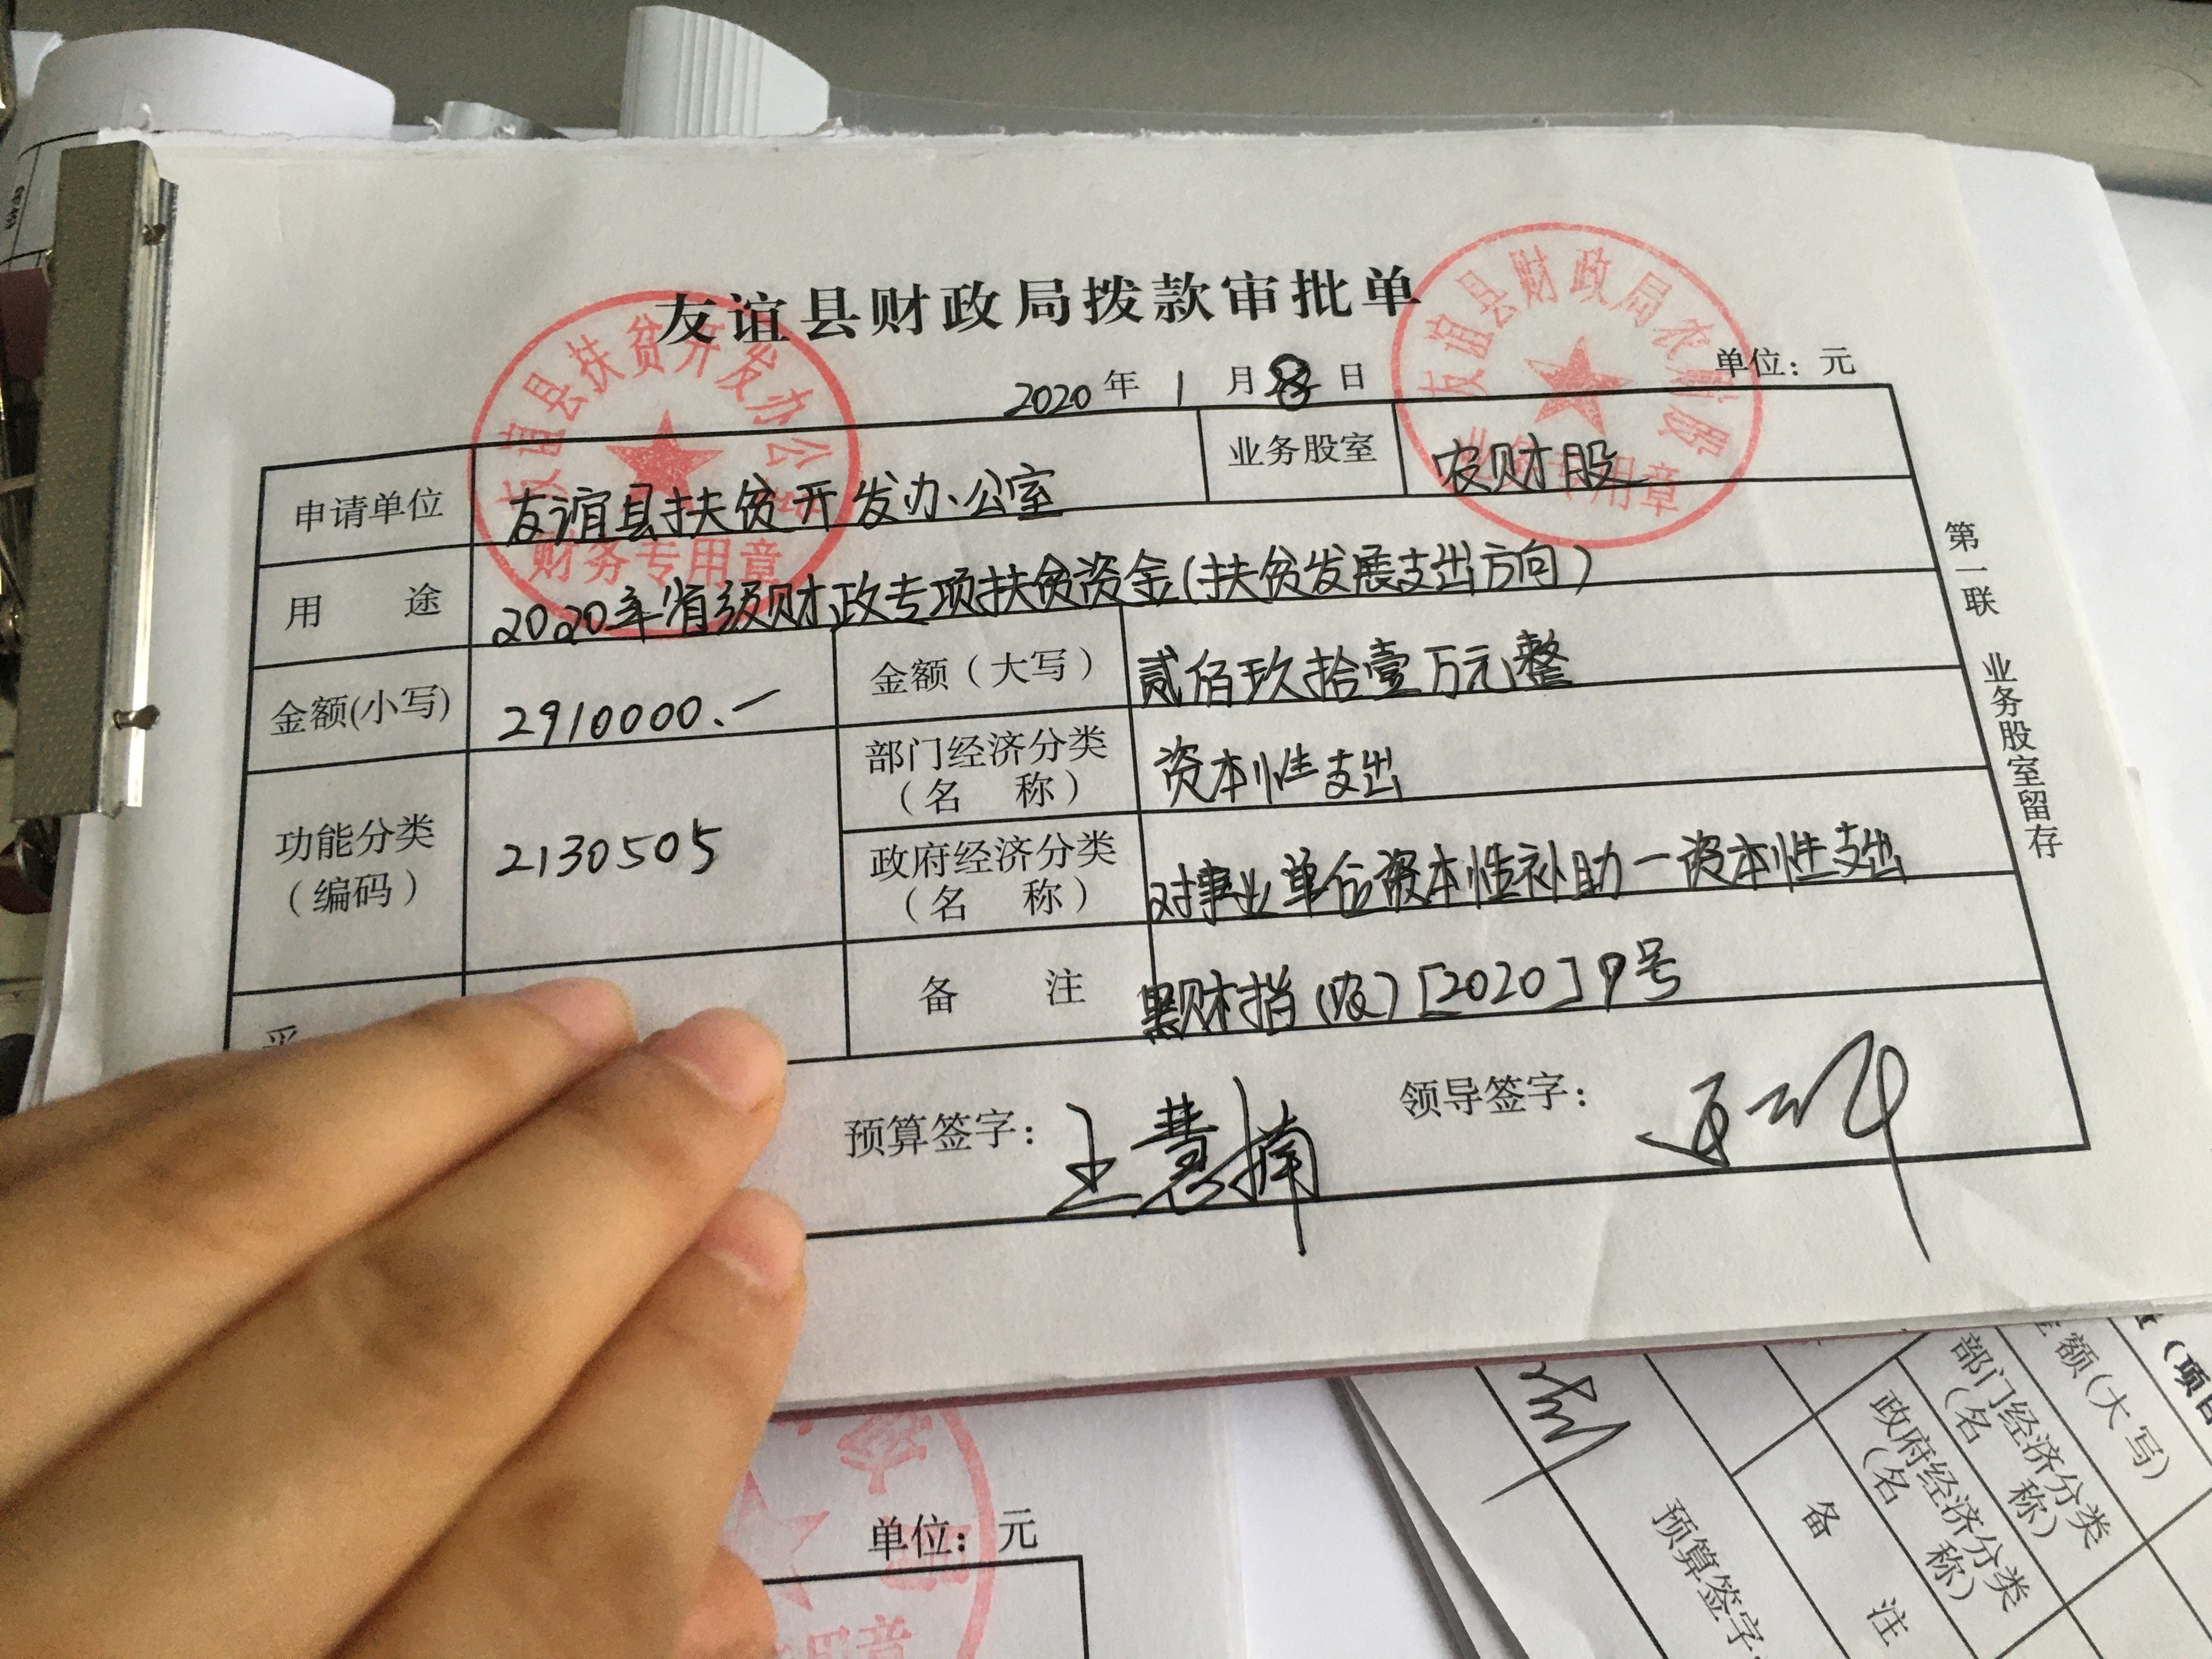 友谊县财政局拨款审批单
2020年 1 月 日
单位：元
申请单位 友谊县扶贫开发办公室 业务股室 农财股
用 途 2020年省级财政专项扶贫资金(扶贫发展支出方向)
金额(小写) 2910000.— 金额（大写） 贰佰玖拾壹万元整
功能分类（编码） 2130505 部门经济分类（名 称） 资本性支出
政府经济分类（名 称） 对事业单位资本性补助一资本性支出
备 注 黑财指(农)[2020]9号
预算签字： 王慧楠 领导签字：
第一联 业务股室留存
友谊县扶贫开发办公室
财务专用章
友谊县财政局农财股
业务专用章
单位：元
用章
额(大写)
部门经济分类
(名 称)
政府经济分类
(名 称)
备 注
预算签字：